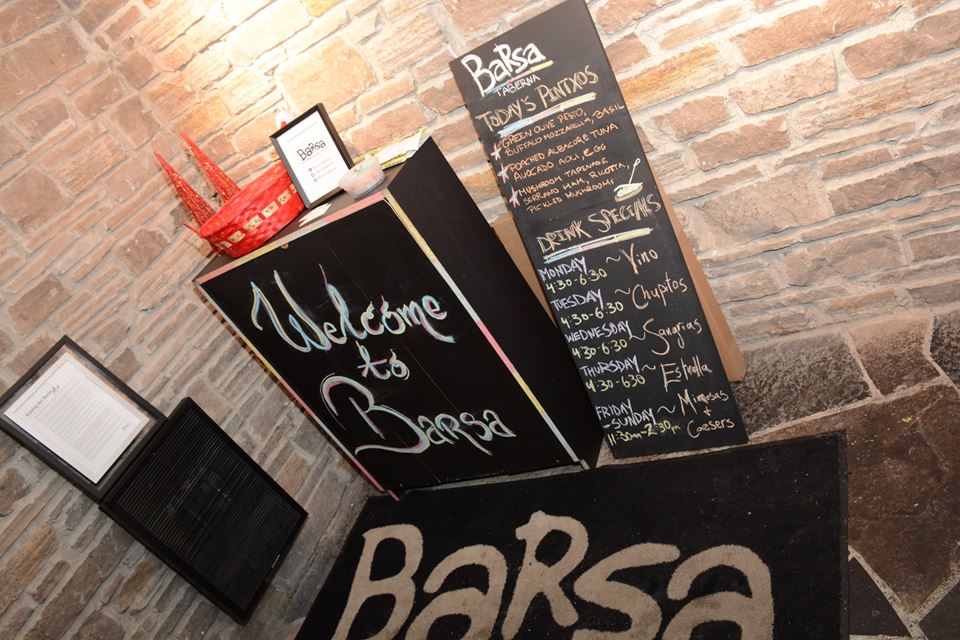 Barsa
Welcome
to
Barsa
Barsa
TABERNA
TODAY'S PINTXOS
GREEN OLIVE PESTO,
BUFFALO MOZZARELLA, BASIL
POACHED ALBACORE TUNA
AVOCADO AOLI, EGG
MUSHROOM TAPENADE
SERRANO HAM, RICOTTA,
PICKLED MUSHROOMS
DRINK SPECIALS
MONDAY ~ Vino
4:30-6:30
TUESDAY ~ Chupitos
4:30-6:30
WEDNESDAY ~ Sangrias
4:30-6:30
THURSDAY ~ Estrella
4:30-6:30
FRIDAY
-SUNDAY ~ Mimosas
+ Caesers
11:30am-2:30pm
BaRsa